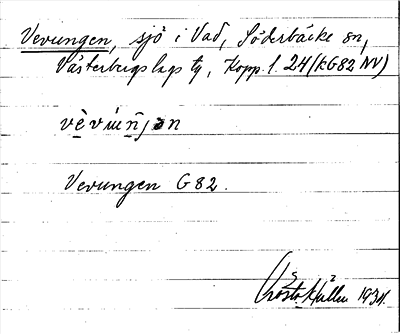 Vevungen, sjö i Vad, Söderbärke sn,
Västerbergslags tg, Kopp. l. 24 (KG82 NV)
Vevungen G 82.
Gösta Hallin 1934.